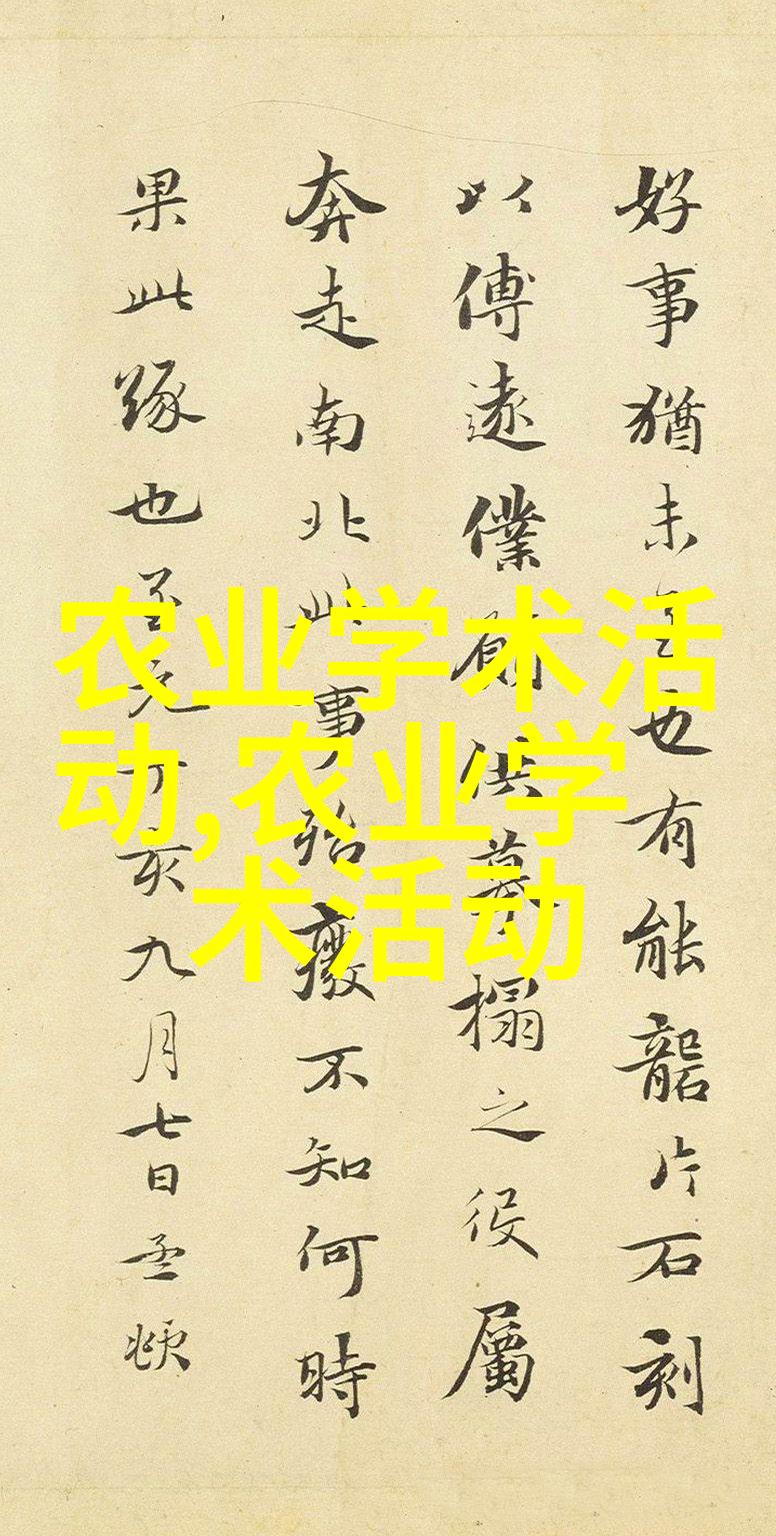 好事猶未也有能礱片石刻
以傳遠僕願供摹搨之役屬
奔走南北此事殆廢不知何時
果此緣也至元丁亥九月七日孟頫
农业学术活
动,农业学
术活动